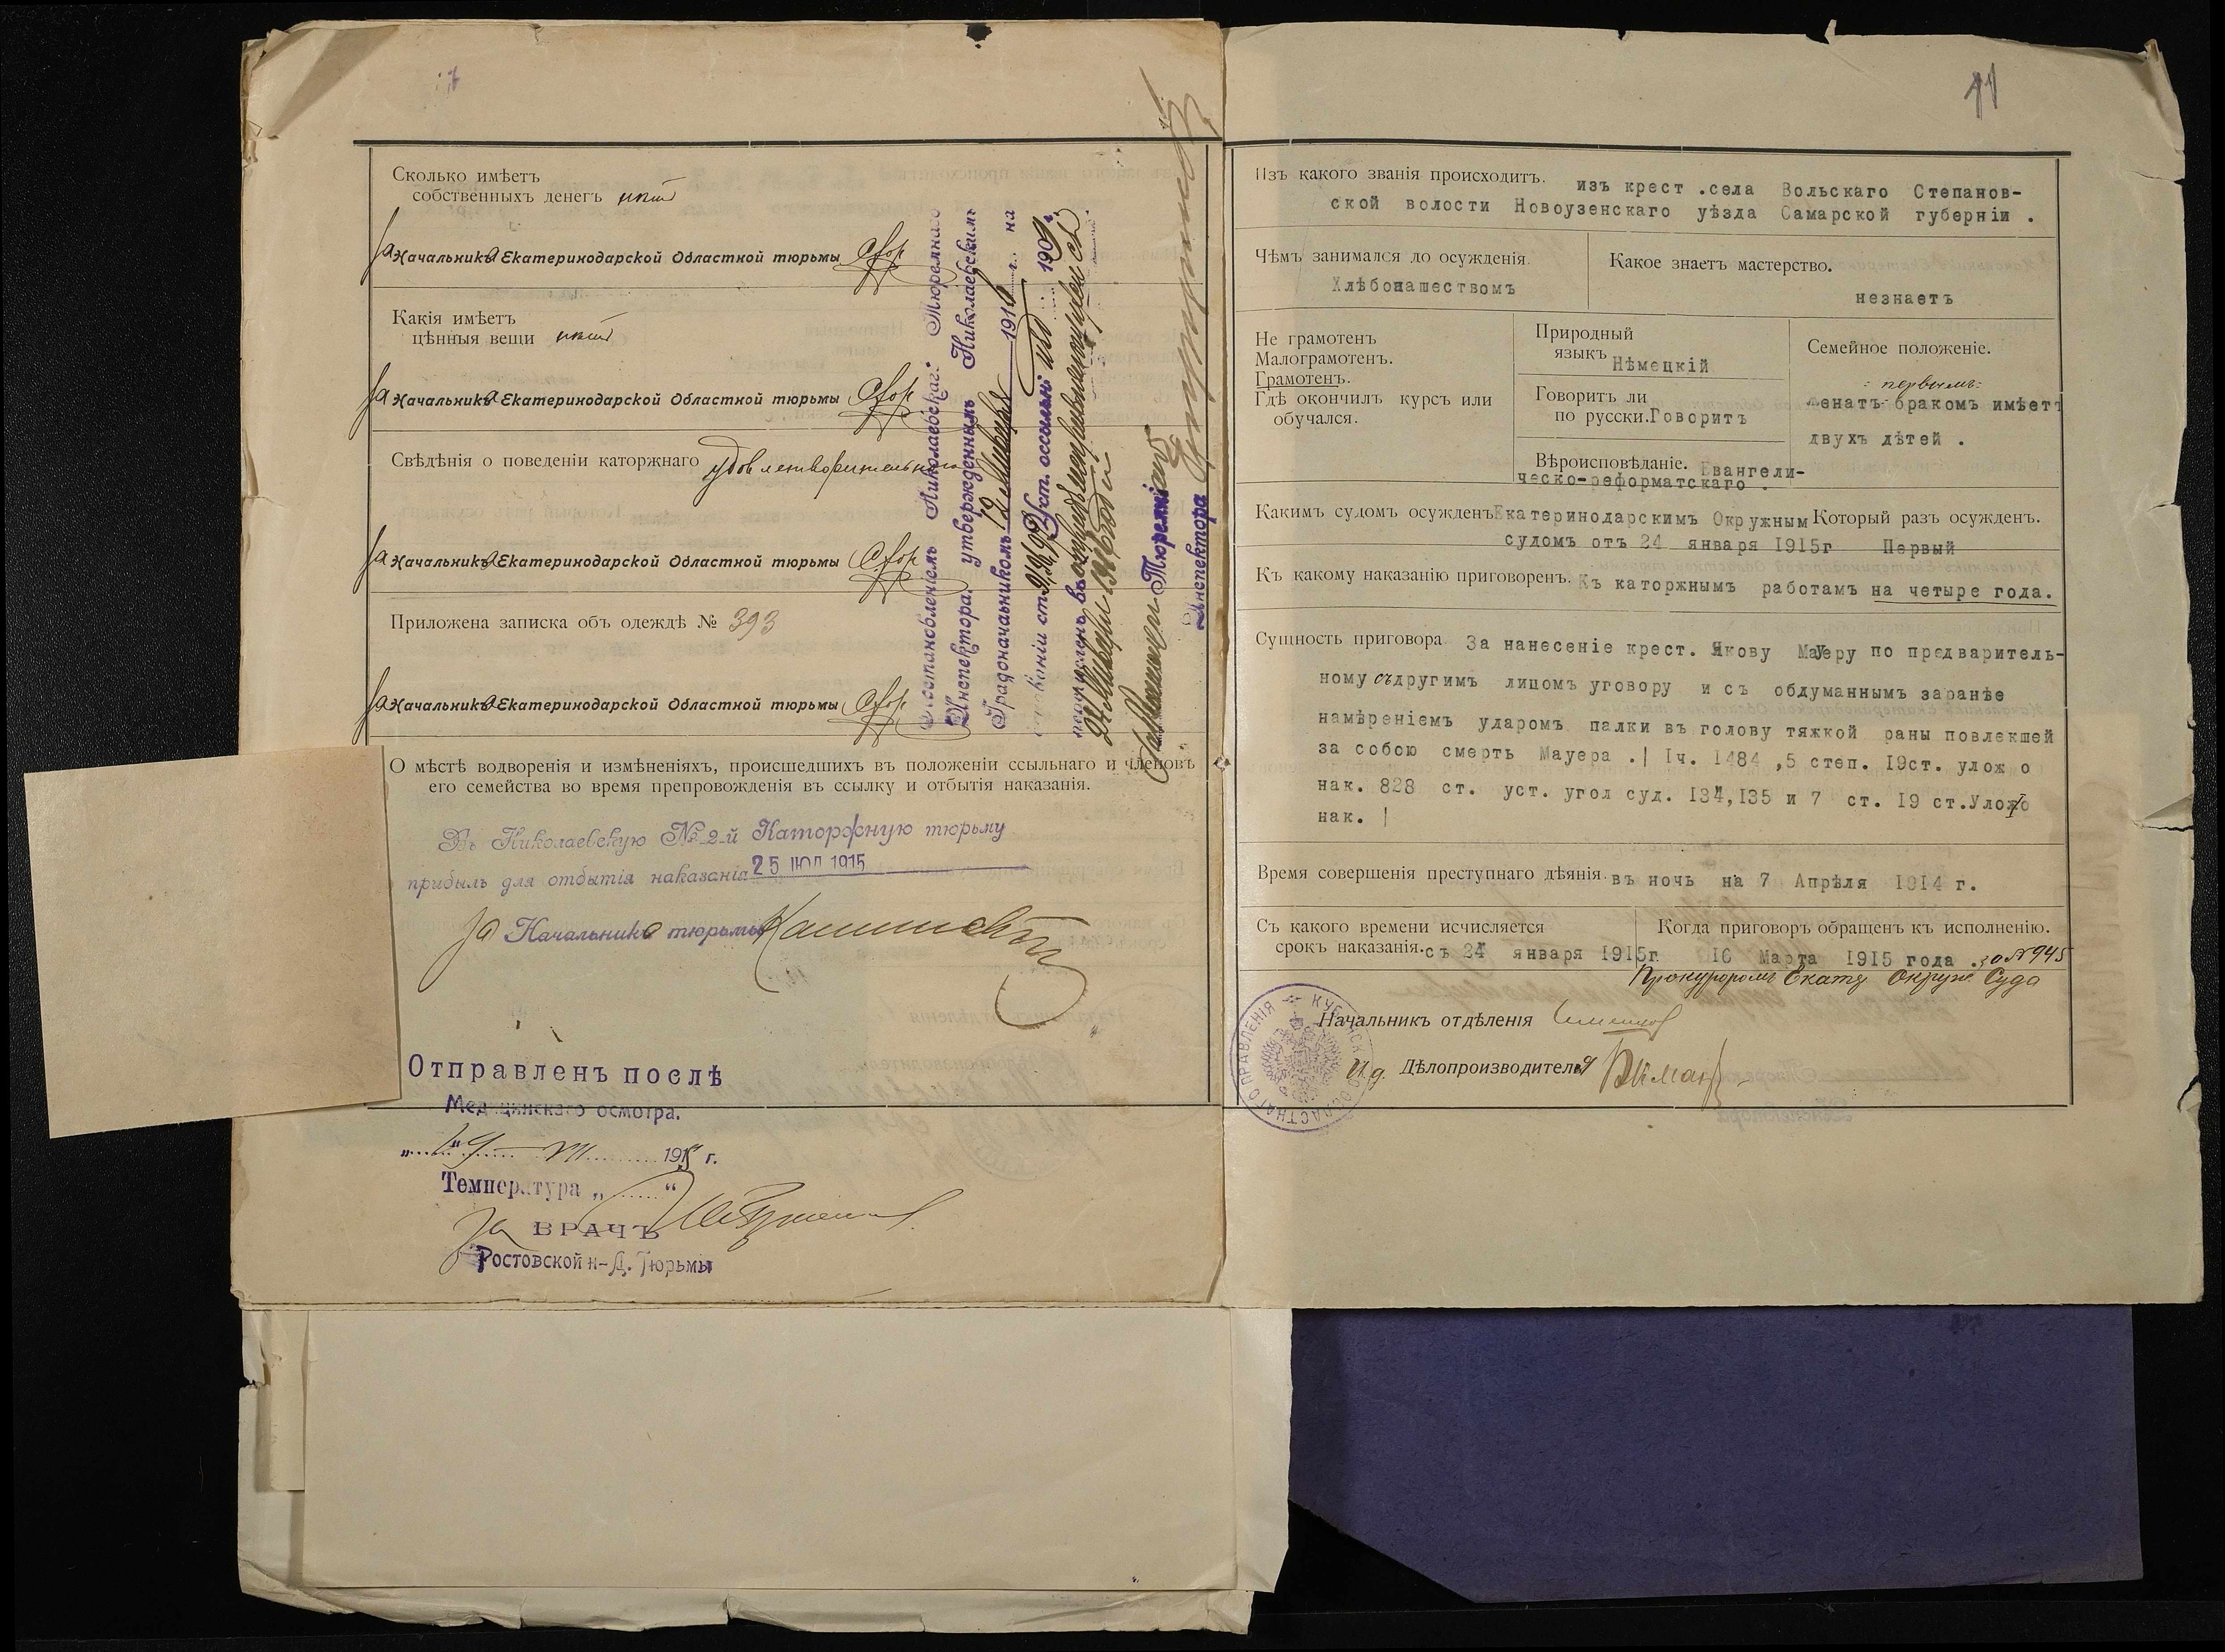 Сколько имѣетъ
собственныхъ денегъ нѣтъ
За Начальника Екатеринодарской Областной тюрьмы
Какія имѣетъ
цѣнныя вещи нѣтъ
За Начальника Екатеринодарской Областной тюрьмы
Свѣдѣнія о поведеніи каторжнаго удовлетворительнаго
За Начальника Екатеринодарской Областной тюрьмы
Приложена записка объ одеждѣ № 393
За Начальника Екатеринодарской Областной тюрьмы
Постановленіемъ Николаевскаго Тюремнаго
Инспектора, утвержденнымъ Николаевскимъ
Градоначальникомъ 191 г. на
основаніи ст. Уст. о ссыльн. изд. 1909 г.
Тюремнаго
Инспектора
О мѣстѣ водворенія и измѣненіяхъ, происшедшихъ въ положеніи ссыльнаго и членовъ
его семейства во время препровожденія въ ссылку и отбытія наказанія.
Въ Николаевскую № 2-й Каторжную тюрьму
прибылъ для отбытія наказанія 25 ІЮЛ 1915
За Начальника тюрьмы
Отправленъ послѣ
Медицинскаго осмотра.
„ 19 “ VII 1915 г.
Температура „ ...... “
За ВРАЧЪ
Ростовской н-Д. Тюрьмы
11
Изъ какого званія происходитъ. изъ крест .села Вольскаго Степанов-
ской волости Новоузенскаго уѣзда Самарской губерніи .
Чѣмъ занимался до осужденія.
Хлѣбопашествомъ
Какое знаетъ мастерство.
незнаетъ
Не грамотенъ
Малограмотенъ.
Грамотенъ.
Гдѣ окончилъ курсъ или
обучался.
Природный
языкъ Нѣмецкій
Говоритъ ли
по русски. Говоритъ
Вѣроисповѣданіе. Евангели-
ческо-реформатскаго .
Семейное положеніе.
: первымъ:
женатъ бракомъ имѣетъ
двухъ дѣтей .
Какимъ судомъ осужденъ Екатеринодарскимъ Окружным
судомъ отъ 24 января 1915г
Который разъ осужденъ.
Первый
Къ какому наказанію приговоренъ. Къ каторжнымъ работамъ на четыре года.
Сущность приговора. За нанесеніе крест. Якову Мауеру по предваритель-
ному съ другимъ лицомъ уговору и съ обдуманнымъ заранѣе
намѣреніемъ ударомъ палки въ голову тяжкой раны повлекшей
за собою смерть Мауера .| Iч. I484 ,5 степ. I9ст. улож о
нак. 828 ст. уст. угол суд. I34,I35 и 7 ст. I9 ст.Улож о
нак. |
Время совершенія преступнаго дѣянія. въ ночь на 7 Апрѣля I9I4 г.
Съ какого времени исчисляется
срокъ наказанія. съ 24 января 1915г.
Когда приговоръ обращенъ къ исполненію.
10 Марта I9I5 года . за № 945
Прокуроромъ Екатер Окружн Суда
Начальникъ отдѣленія
И. д. Дѣлопроизводителя
КУБАНСКАГО ОБЛАСТНАГО ПРАВЛЕНІЯ